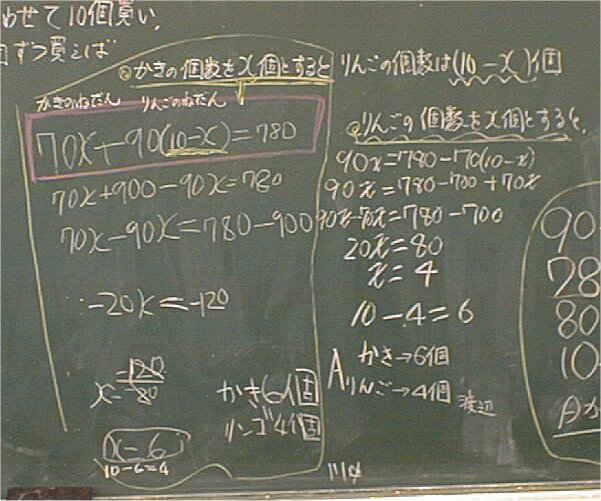 わせて10個買い,
ずつ買えば
かきの個数をx個とすると りんごの個数は(10-x)個
かきのねだん りんごのねだん
70x+90(10-x)=780
70x+900-90x=780
70x-90x=780-900
-20x=-120
x=-120/-20
x=6
10-6=4
かき6個
リンゴ4個
りんごの個数をx個とすると,
90x=780-70(10-x)
90x=780-700+70x
90x-70x=780-700
20x=80
x=4
10-4=6
A かき→6個
りんご→4個 渡辺
90
78
80
10
A か